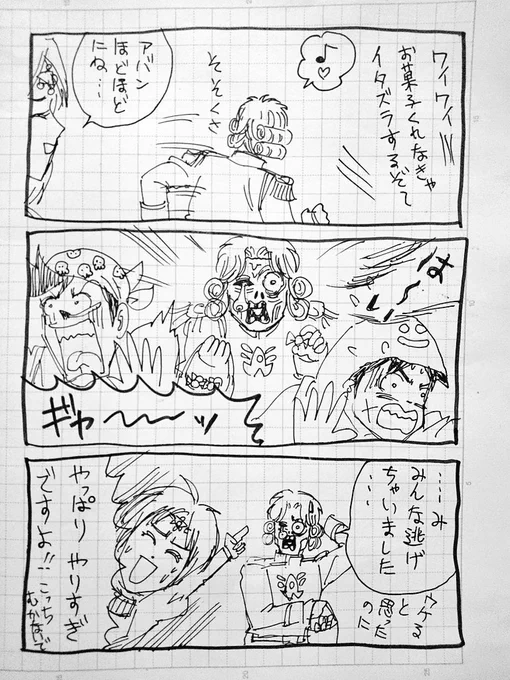 ワイワイ
お菓子くれなきゃ
イタズラするぞて
♪
♡
そそくさ
アバン
ほどほど
にね…
はーい
ギャ〜〜〜ッ
……み
みんな逃げ
ちゃいました
……
ウケる
と
思った
のに
やっぱり やりすぎ
ですよ!! こっち
むかないで